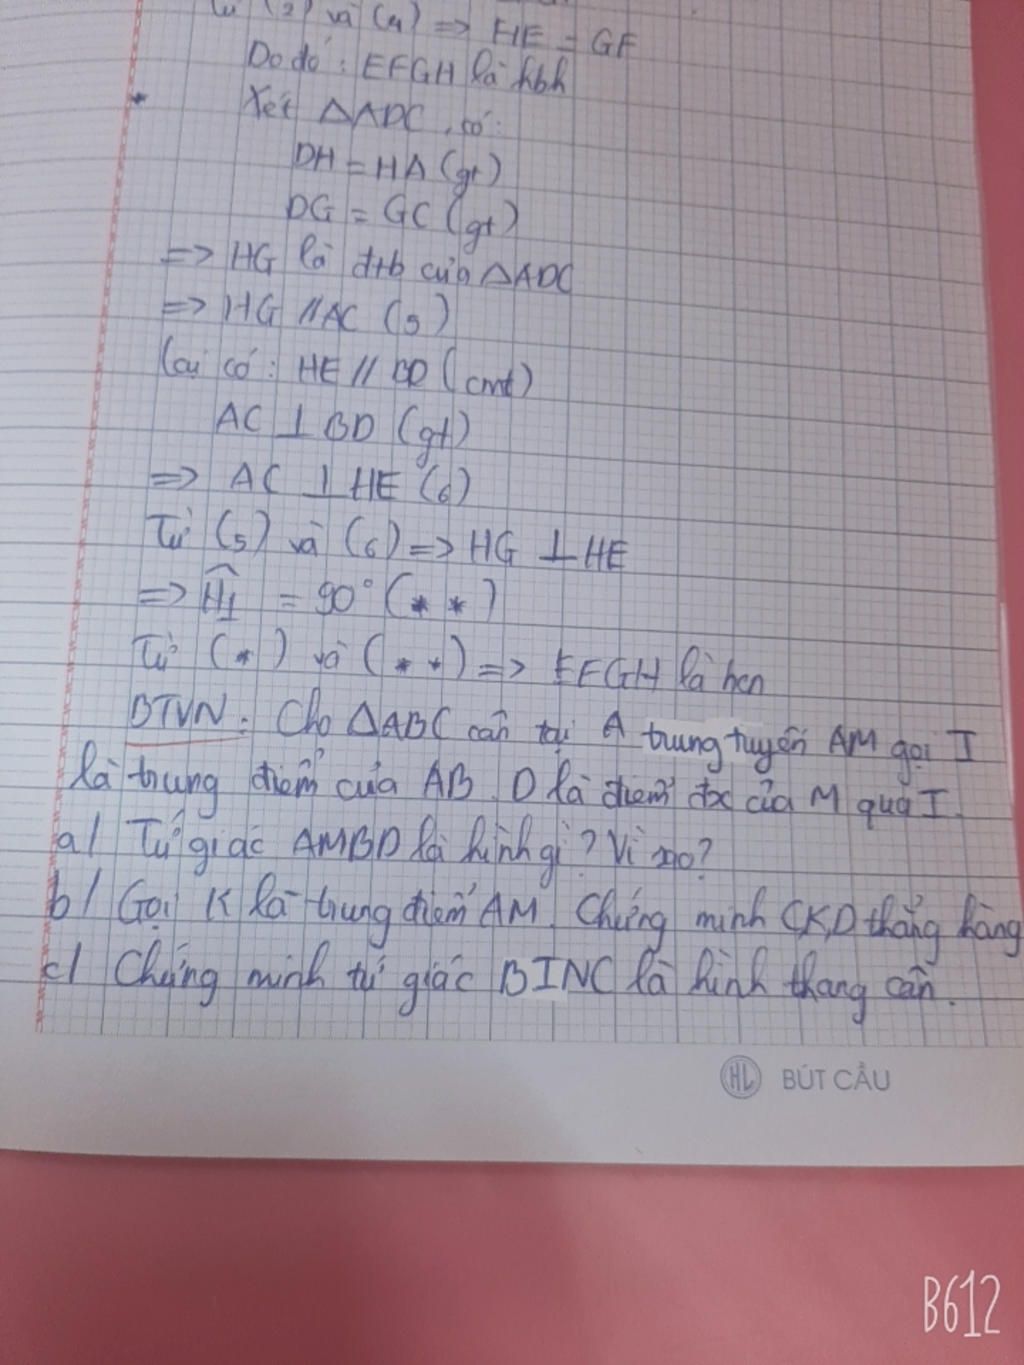 Từ (2) và (4) => HE = GF
Do đó : EFGH là hbh
Xét △ADC, có:
DH = HA (gt)
DG = GC (gt)
=> HG là đtb của △ADC
=> HG // AC (5)
Lại có : HE // BD (cmt)
AC ⊥ BD (gt)
=> AC ⊥ HE (6)
Từ (5) và (6) => HG ⊥ HE
=> Ĥ1 = 90° (**)
Từ (*) và (**) => EFGH là hcn
BTVN : Cho △ABC cân tại A trung tuyến AM gọi I
là trung điểm của AB. D là điểm đx của M qua I.
a/ Tứ giác AMBD là hình gì? Vì sao?
b/ Gọi K là trung điểm AM. Chứng minh CKD thẳng hàng
c/ Chứng minh tứ giác BINC là hình thang cân.
HL BÚT CẦU
B612